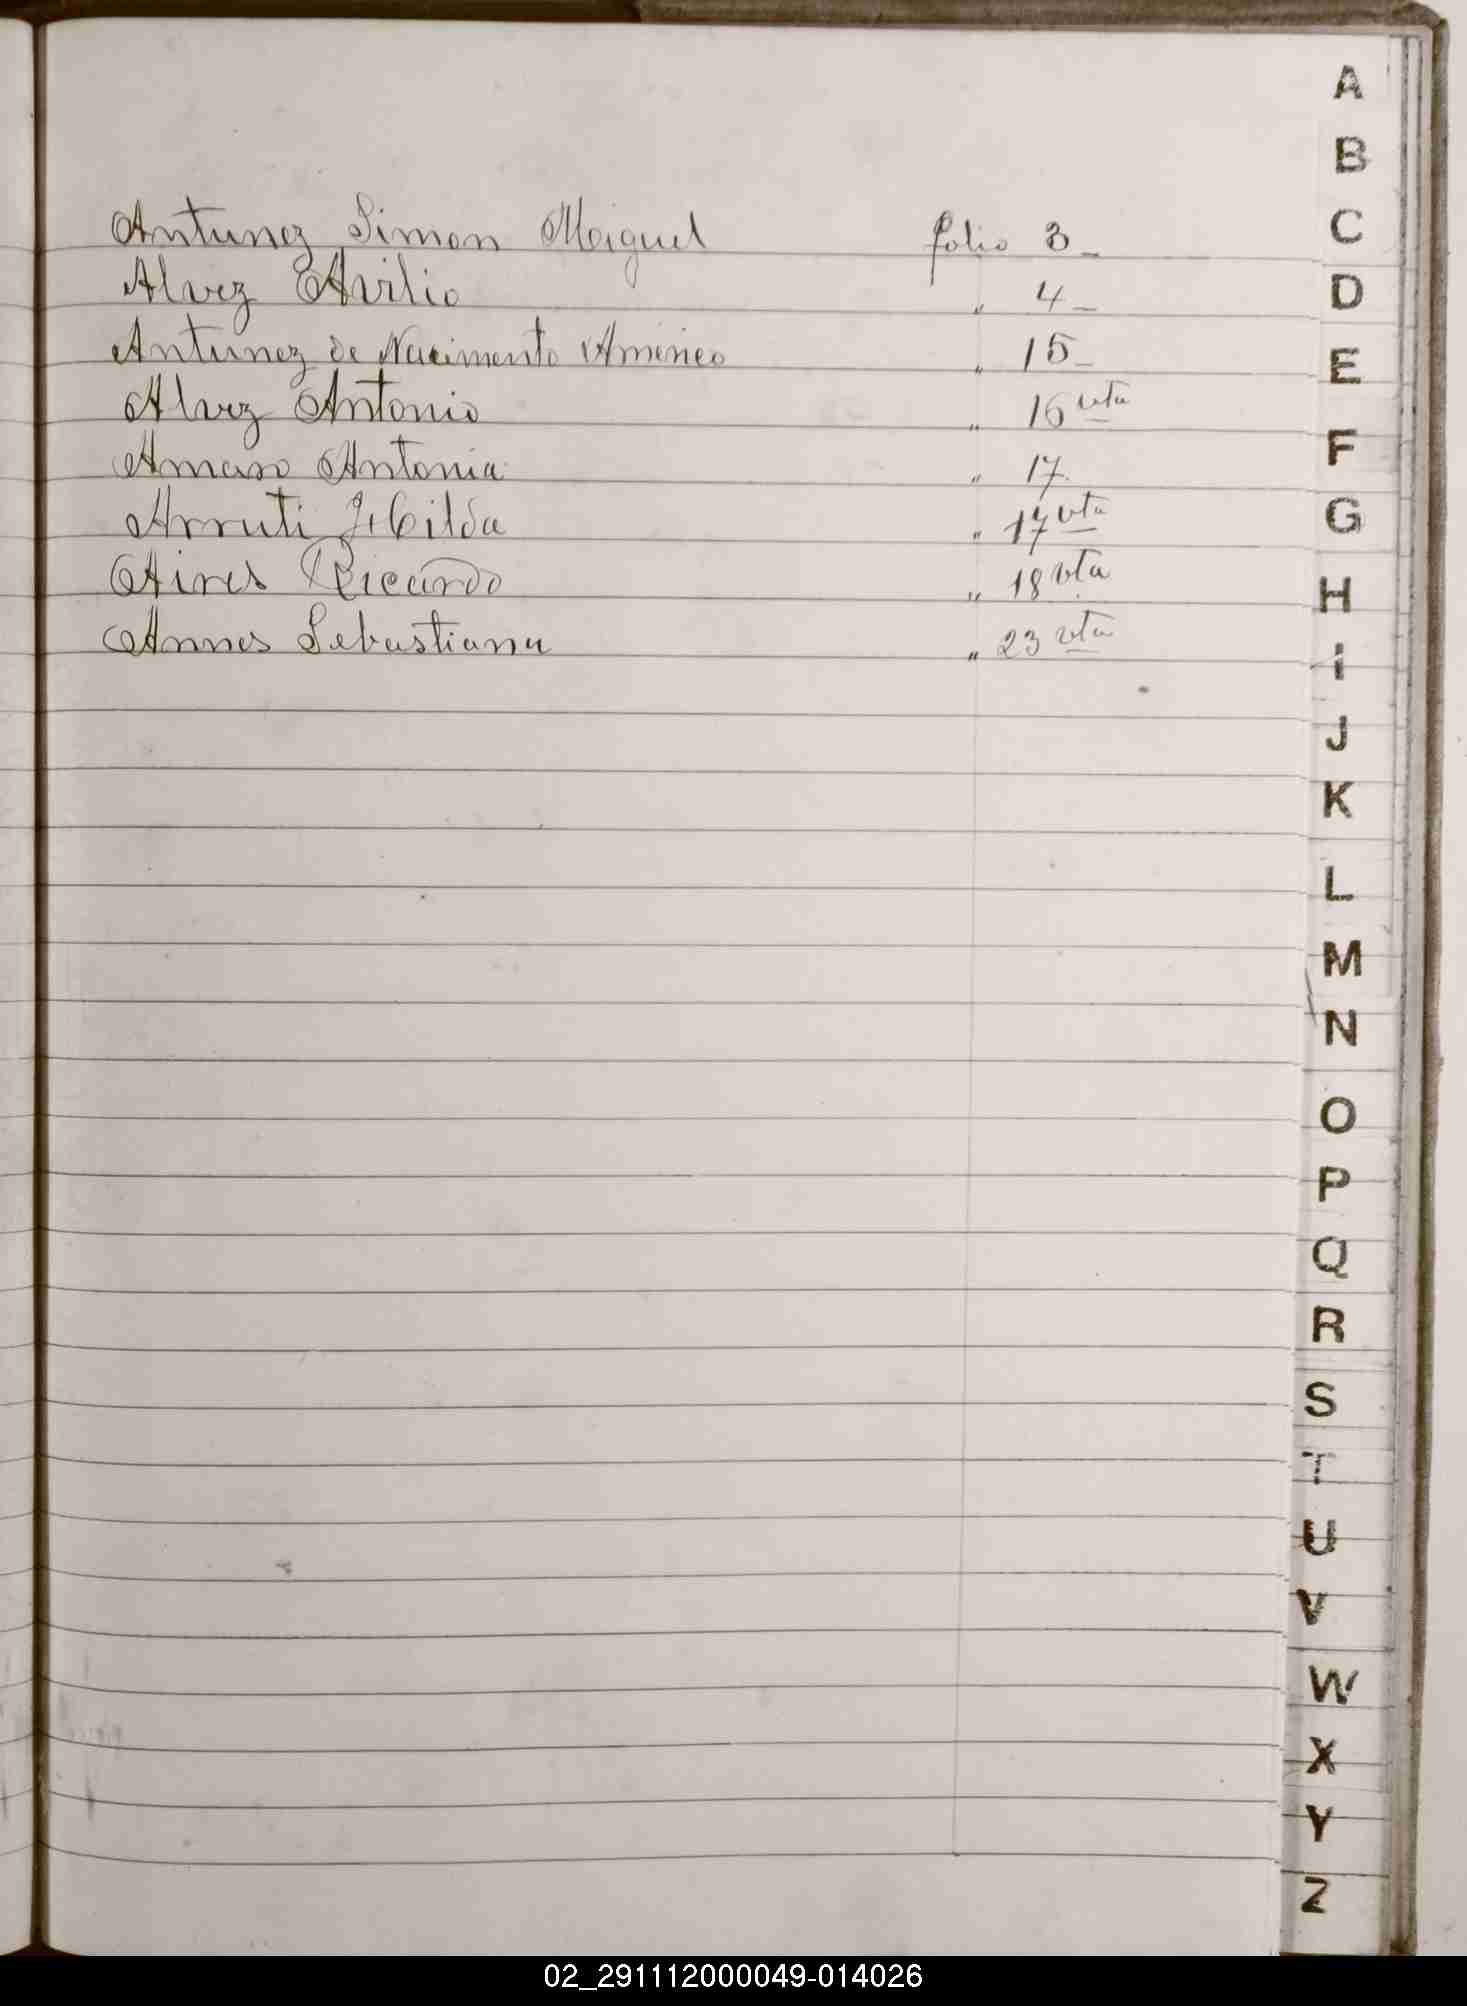 Antunez Simon Meiguel folio 3_
Alvez Avilio " 4_
Antunez de Nacimento Americo " 15_
Alvez Antonio " 16 vta
Amaro Antonia " 17
Arruti Hilda " 17 vta
Aires Ricardo " 18 vta
Annes Sebastiana " 23 vta
A
B
C
D
E
F
G
H
I
J
K
L
M
N
O
P
Q
R
S
T
U
V
W
X
Y
Z
02_291112000049-014026